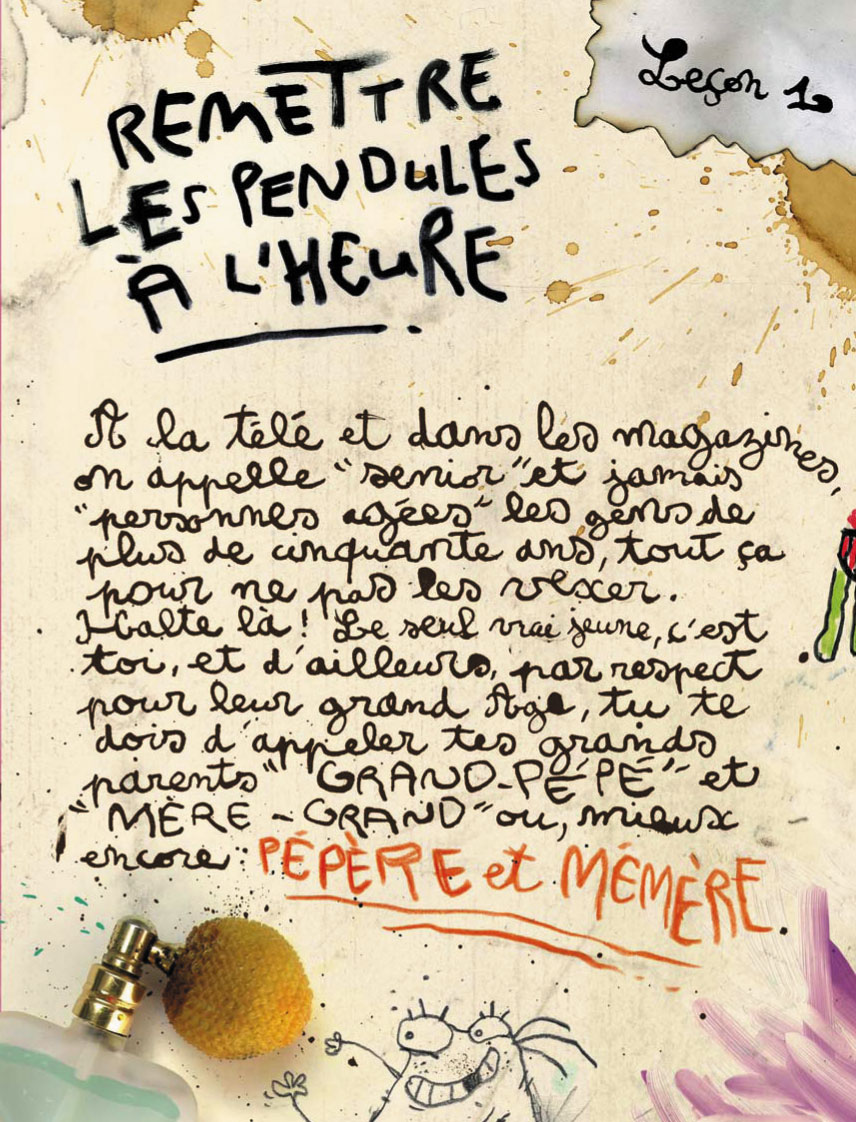 Leçon 1.
REMETTRE
LES PENDULES
À L'HEURE
A la télé et dans les magazines,
on appelle "senior" et jamais
"personnes agées" les gens de
plus de cinquante ans, tout ça
pour ne pas les vexer.
Halte là ! Le seul vrai jeune, c'est
toi, et d'ailleurs, par respect
pour leur grand Age, tu te
dois d'appeler tes grands
parents "GRAND-PÉPÉ" et
"MÈRE-GRAND" ou, mieux
encore : PÉPÈRE et MÉMÈRE.